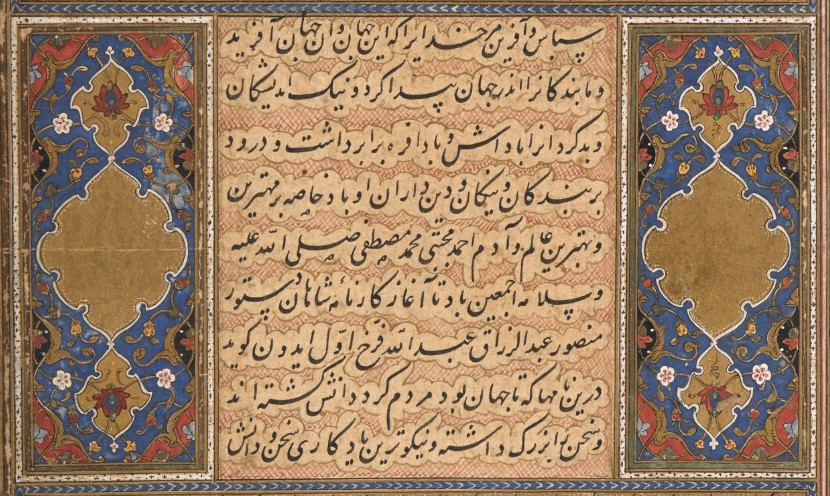 سپاس و آفرین مر خدایرا که این جهان و آن جهان آفرید
و ما بندکانرا اندر جهان پیدا کرد و نیک اندیشکان
و بدکردانرا پاداش و بادافره برابر داشت و درود
بر بندکان و نیکان و دین داران او باد خاصه بر مهترین
و بهترین عالم و آدم احمد مجتبی محمد مصطفی صلی الله علیه
و سلامه اجمعین باد تا آغاز کارنامه شاهان دستور
منصور عبدالرزاق عبدالله فرخ اول ایدون کوید
درین نامها که تا جهان بود مردم کرد دانش کشته اند
و سخن را بزرک داشته و نیکوترین یادکاری سخن و دانش